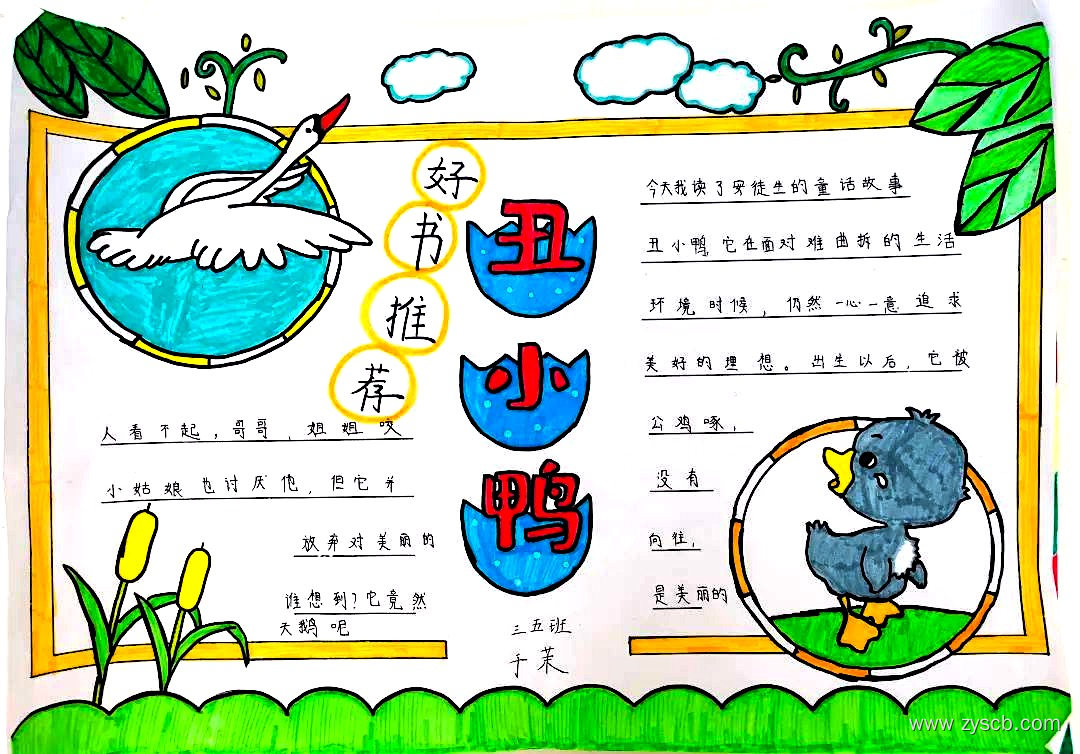 好书推荐
丑小鸭
今天我读了安徒生的童话故事
丑小鸭,它在面对难曲拆的生活
环境时候,仍然一心一意追求
美好的理想。出生以后,它被
人看不起,哥哥,姐姐咬
公鸡啄,
小姑娘也讨厌他,但它并
没有
放弃对美丽的
向往,
谁想到?它竟然
是美丽的
天鹅呢
三五班
于茉
www.zyscb.com